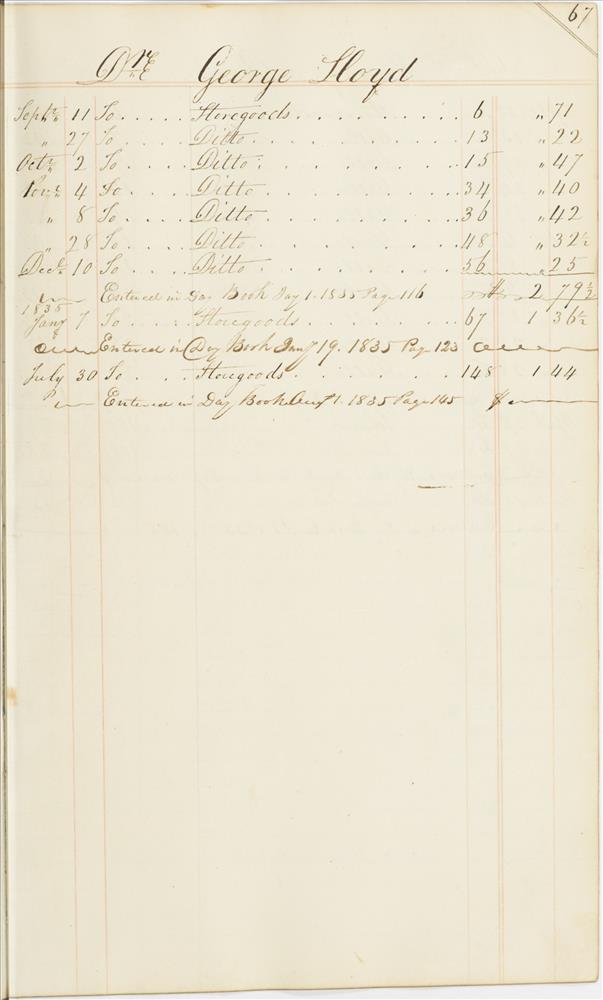 67
Dr. George Lloyd
Sept. 11 To . . . . . Storegoods . . . . . . . . . . 6 " 71
" 27 To . . . . . Ditto . . . . . . . . . . 13 " 22
Oct. 2 To . . . . Ditto . . . . . . . . . . 15 " 47
Nov. 4 To . . . . Ditto . . . . . . . . . . 34 " 40
" 8 To . . . . Ditto . . . . . . . . . . 36 " 42
" 28 To . . . . Ditto . . . . . . . . . . 48 " 32½
Dec. 10 To . . . . Ditto . . . . . . . . . . 56 " 25
Entered in Day Book Jany 1. 1835 Page 116 $ 2 79½
1835
Jany 7 To . . . . Storegoods . . . . . . . . 67 1 36½
Entered in Day Book Jany 19. 1835 Page 123
July 30 To . . . . Storegoods . . . . . . . . 148 1 44
Entered in Day Book Augt 1. 1835 Page 145 $